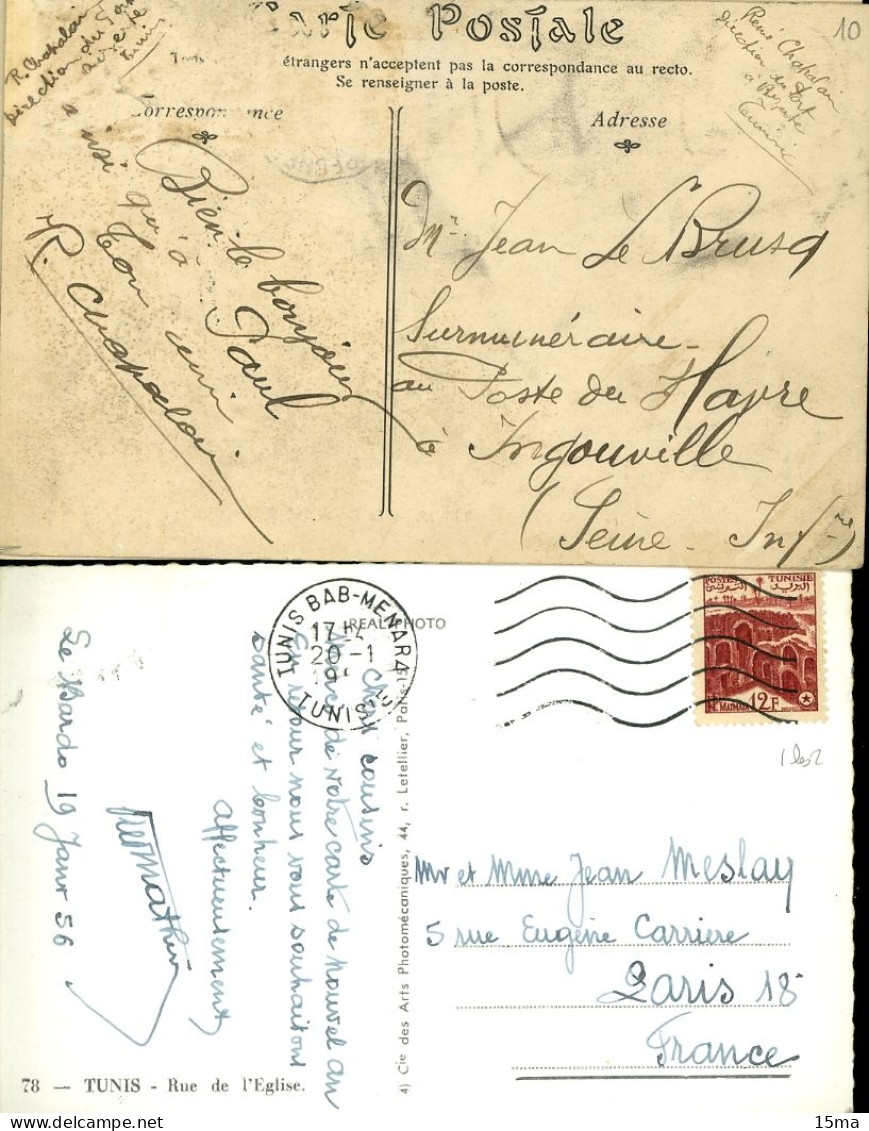 Carte Postale
étrangers n'acceptent pas la correspondance au recto.
Se renseigner à la poste.
Correspondance
Adresse
R. Chapalain
Direction du Port
Bizerte
Tunisie
René Chapalain
Direction du Port
à Bizerte
Tunisie
10
Bien le bonjour
à Paul
ainsi qu'à
ton ami
R. Chapalain
Mr Jean Le Brusq
Surnuméraire
au Poste du Havre
à Ingouville
(Seine-Infre)
TUNIS BAB-MENARA
17 H
20-1
19
TUNIS
REAL PHOTO
POSTES TUNISIE
MATMATA
12F
Le Bardo 19 Janv 56
Chers cousins
Merci de votre carte de nouvel an
En retour nous vous souhaitons
santé et bonheur.
affectueusement
4) Cie des Arts Photomécaniques, 44, r. Letellier, Paris-15
Mr et Mme Jean Meslay
5 rue Eugène Carriere
Paris 18
France
78 — TUNIS - Rue de l'Eglise.
15ma